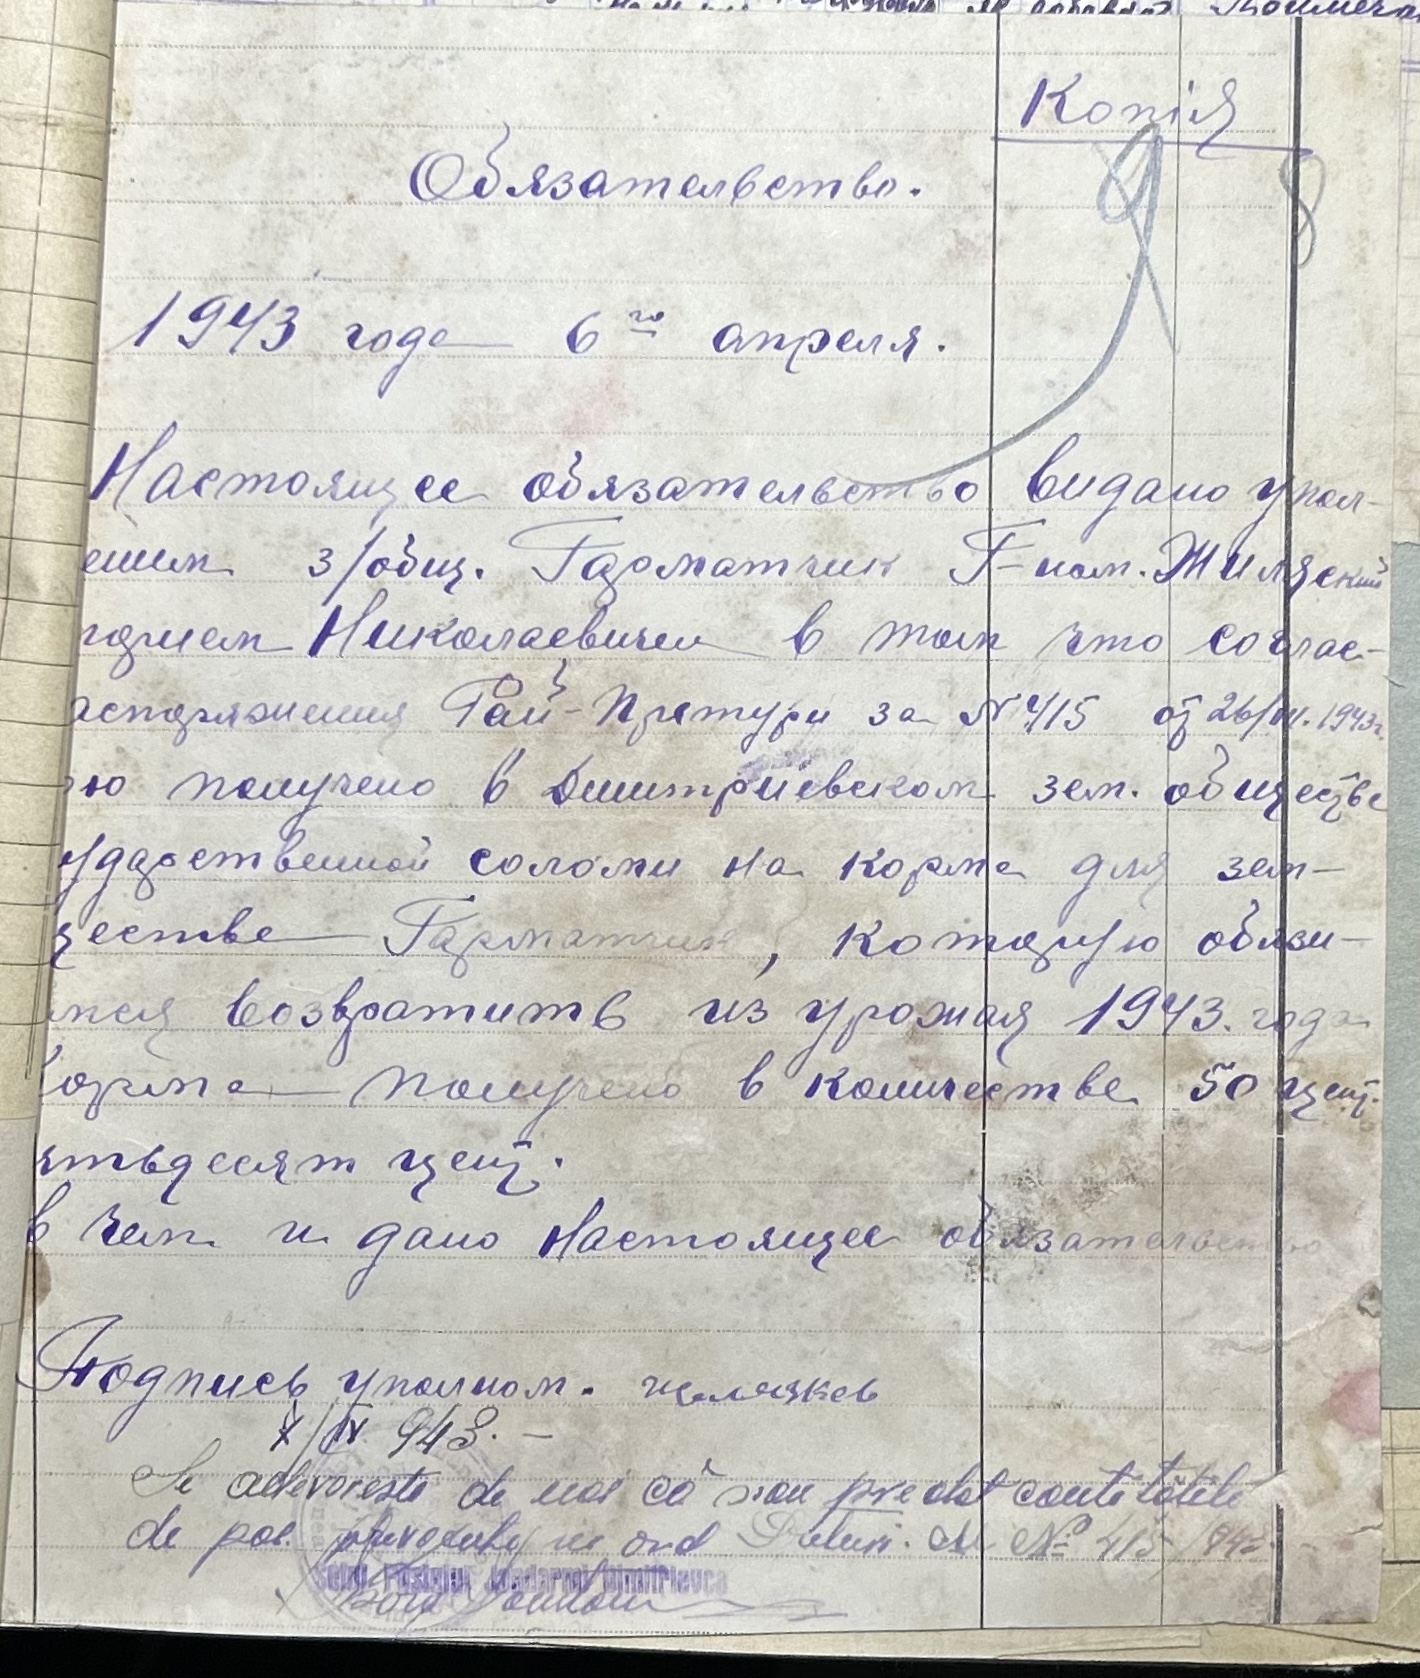 Копія
8
Обязательство.
1943 года 6го апреля.
Настоящее обязательство видано упол-
ения з/общ. Гарматчик Г-ном. Жиляский
Николаевичем в том что соглас-
аспоряжения Рай-Претури за № 415 от 26/III. 1943г.
ю получено в Дмитриевском зем. обществе
ударственной соломи на корма для зем-
ществе Гарматчик, которую обязи-
емся возвратить из урожая 1943. года
Корма получено в количестве 50 цент.
ятьдесят цент.
в чем и дано настоящее обязательство
Подпись уполном.
X/IV 943. -
Se adevereste de noi că s'au predat cantitatile
de pae prevazute in ord Preturii. Nº 415/943. -
Seful Postului Jandarmi Dimitrievca